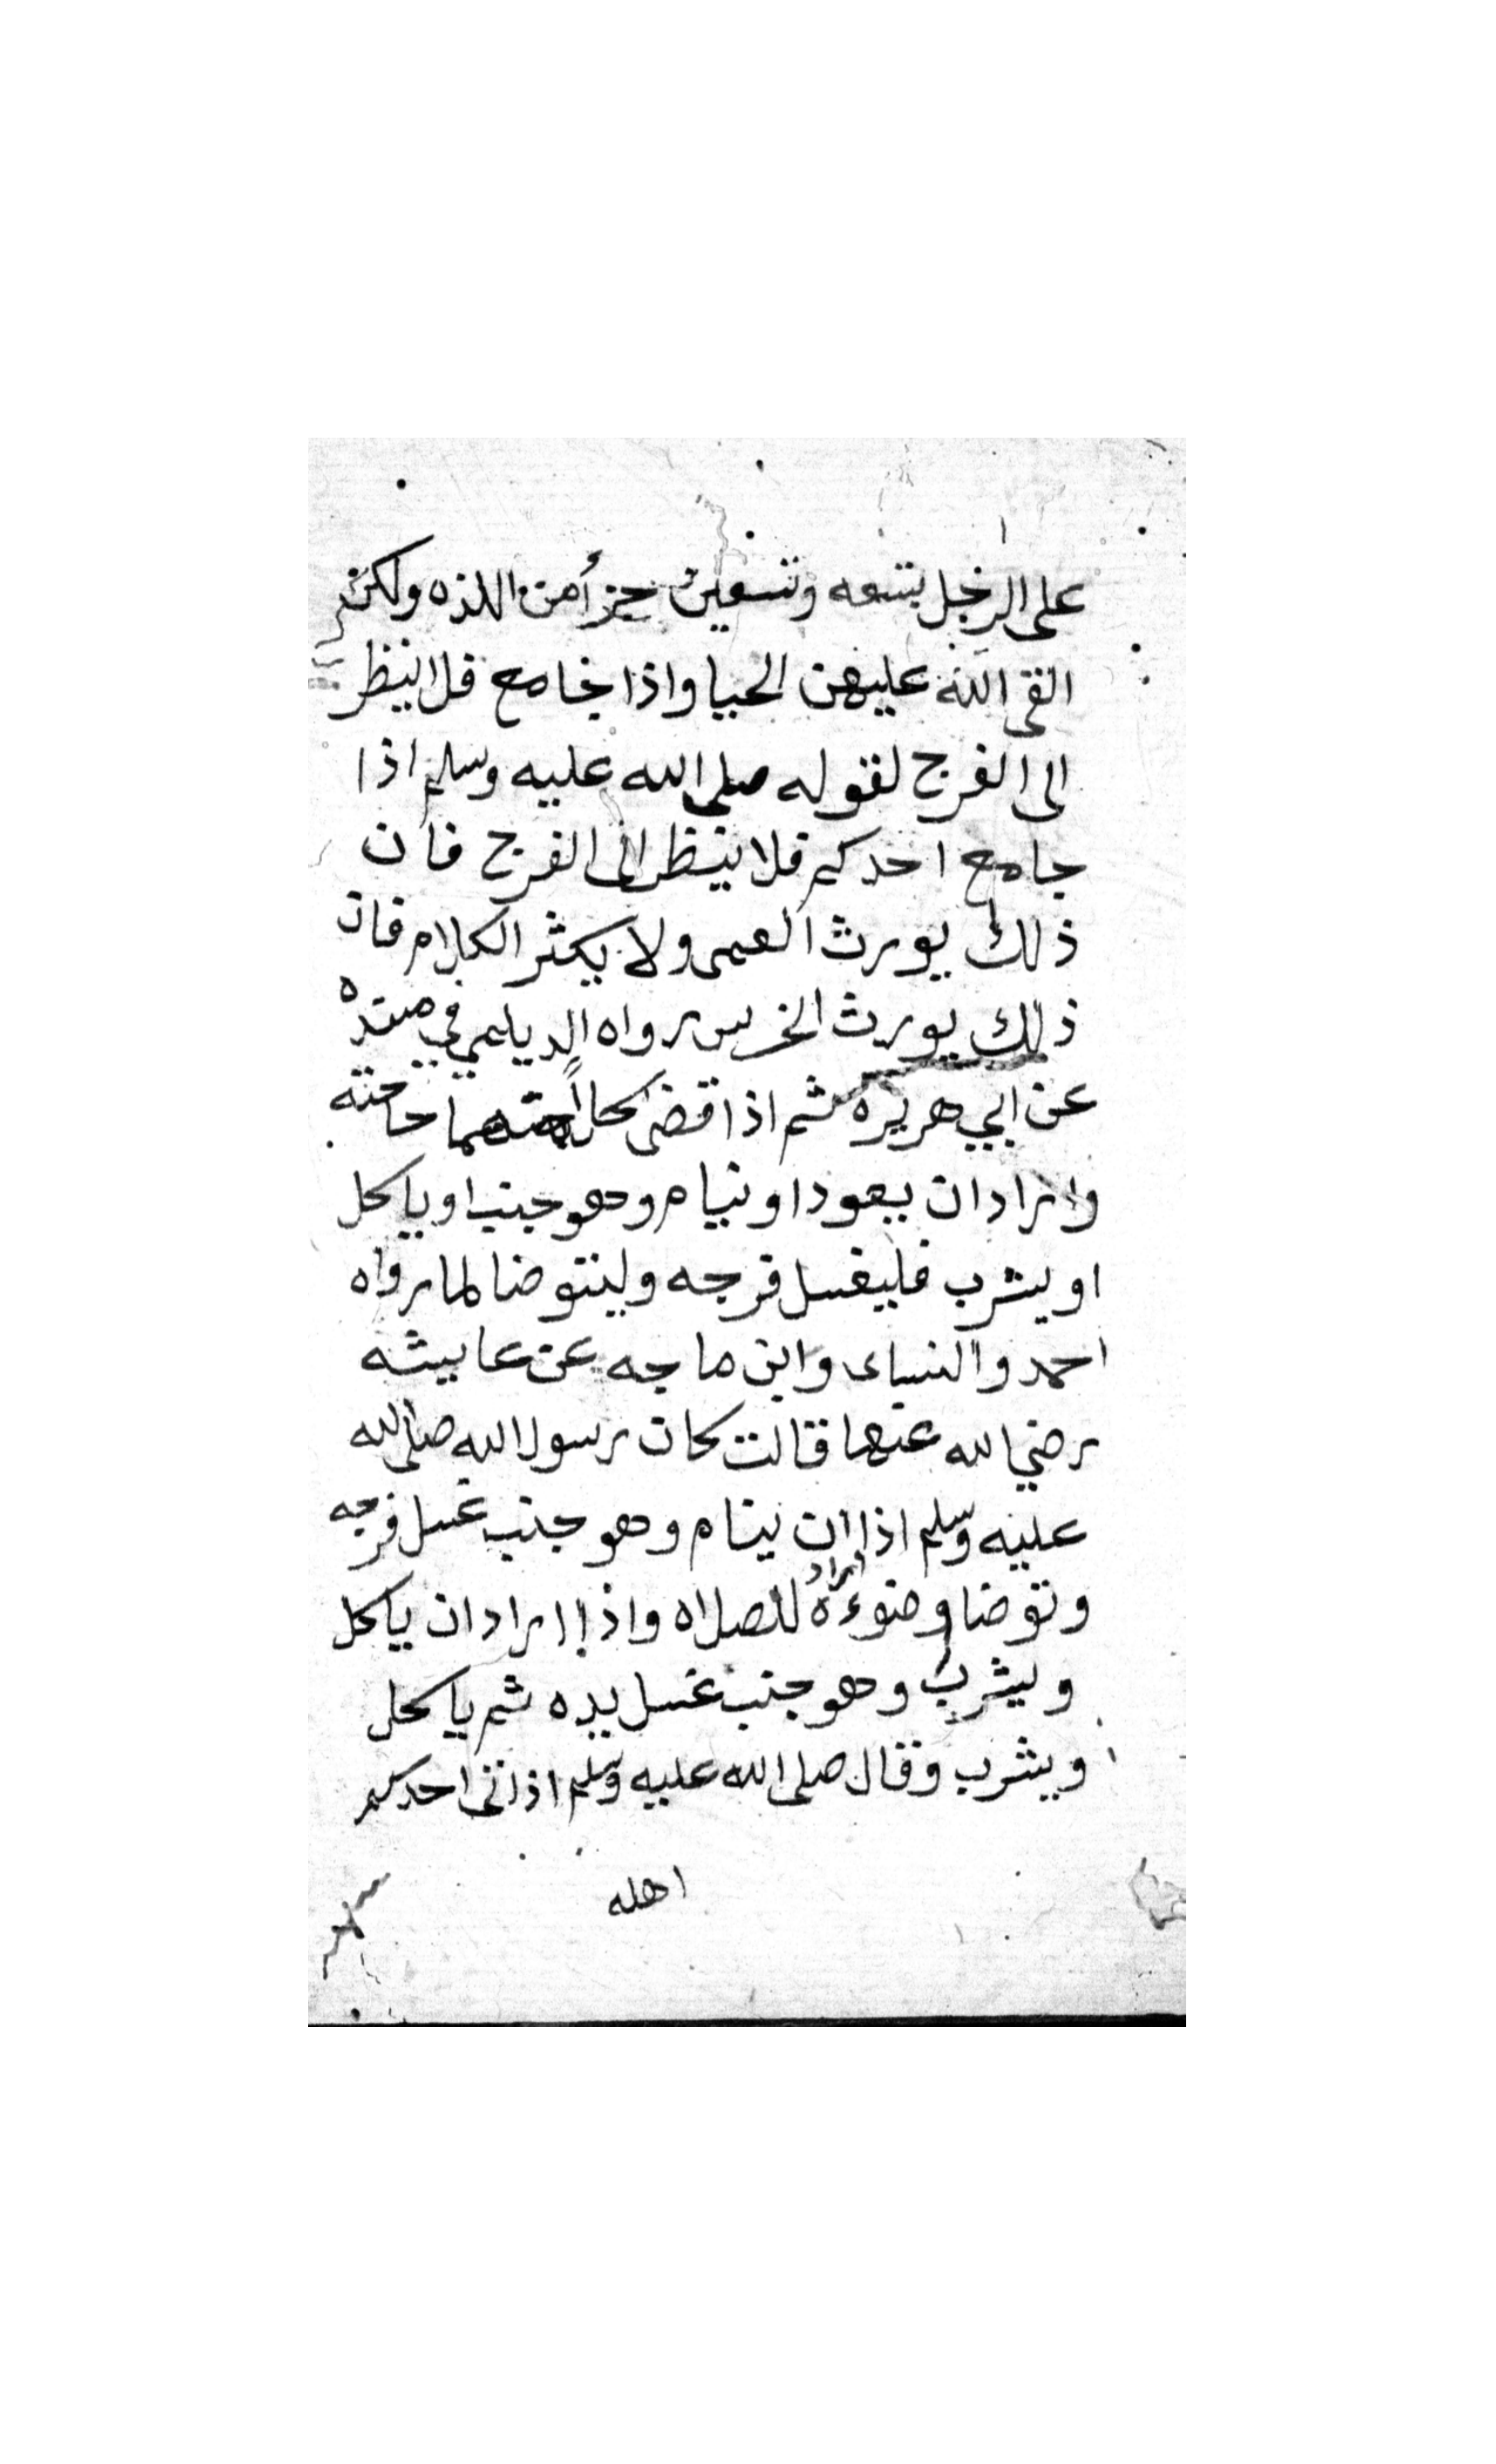 على الرجل بتسعه وتسعين جزأ من اللذه ولكن
القى الله عليهن الحيا واذا جامع فلا ينظر
الى الفرج لقوله صلى الله عليه وسلم اذا
جامع احدكم فلا ينظر الى الفرج فان
ذلك يورث العمى ولا يكثر الكلام فان
ذلك يورث الخرس رواه الديلمي في مسنده
عن ابي هريره ثم اذا قضى كلا منهما حاجته
واراد ان يعود او ينام وهو جنب او ياكل
او يشرب فليغسل فرجه وليتوضا لما رواه
احمد والنساى وابن ماجه عن عايشه
رضي الله عنها قالت كان رسول الله صلى الله
عليه وسلم اذا اراد ان ينام وهو جنب غسل فرجه
وتوضا وضوءه للصلاه واذا اراد ان ياكل
او يشرب وهو جنب غسل يده ثم ياكل
ويشرب وقال صلى الله عليه وسلم اذا اتى احدكم
اهله